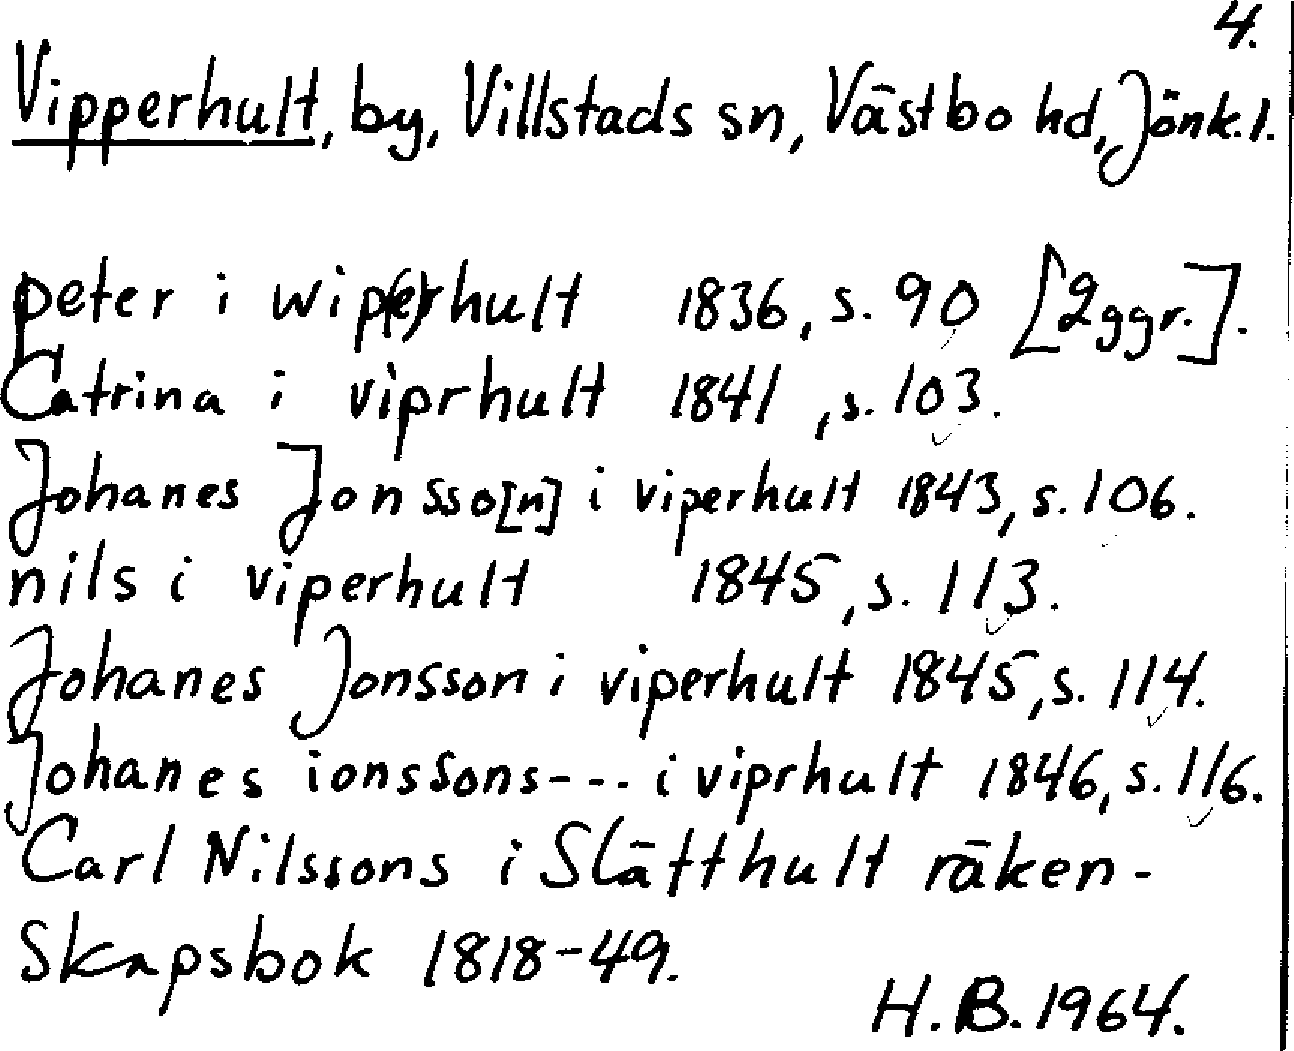 4.
Vipperhult, by, Villstads sn, Västbo hd, Jönk. l.
peter i wip(e)rhult 1836, s. 90 [2ggr.].
Catrina i viprhult 1841, s. 103.
Johanes Jonsso[n] i viperhult 1843, s. 106.
nils i viperhult 1845, s. 113.
Johanes Jonsson i viperhult 1845, s. 114.
Johanes ionssons--- i viprhult 1846, s. 116.
Carl Nilssons i Slätthult räken-
skapsbok 1818-49.
H.B. 1964.